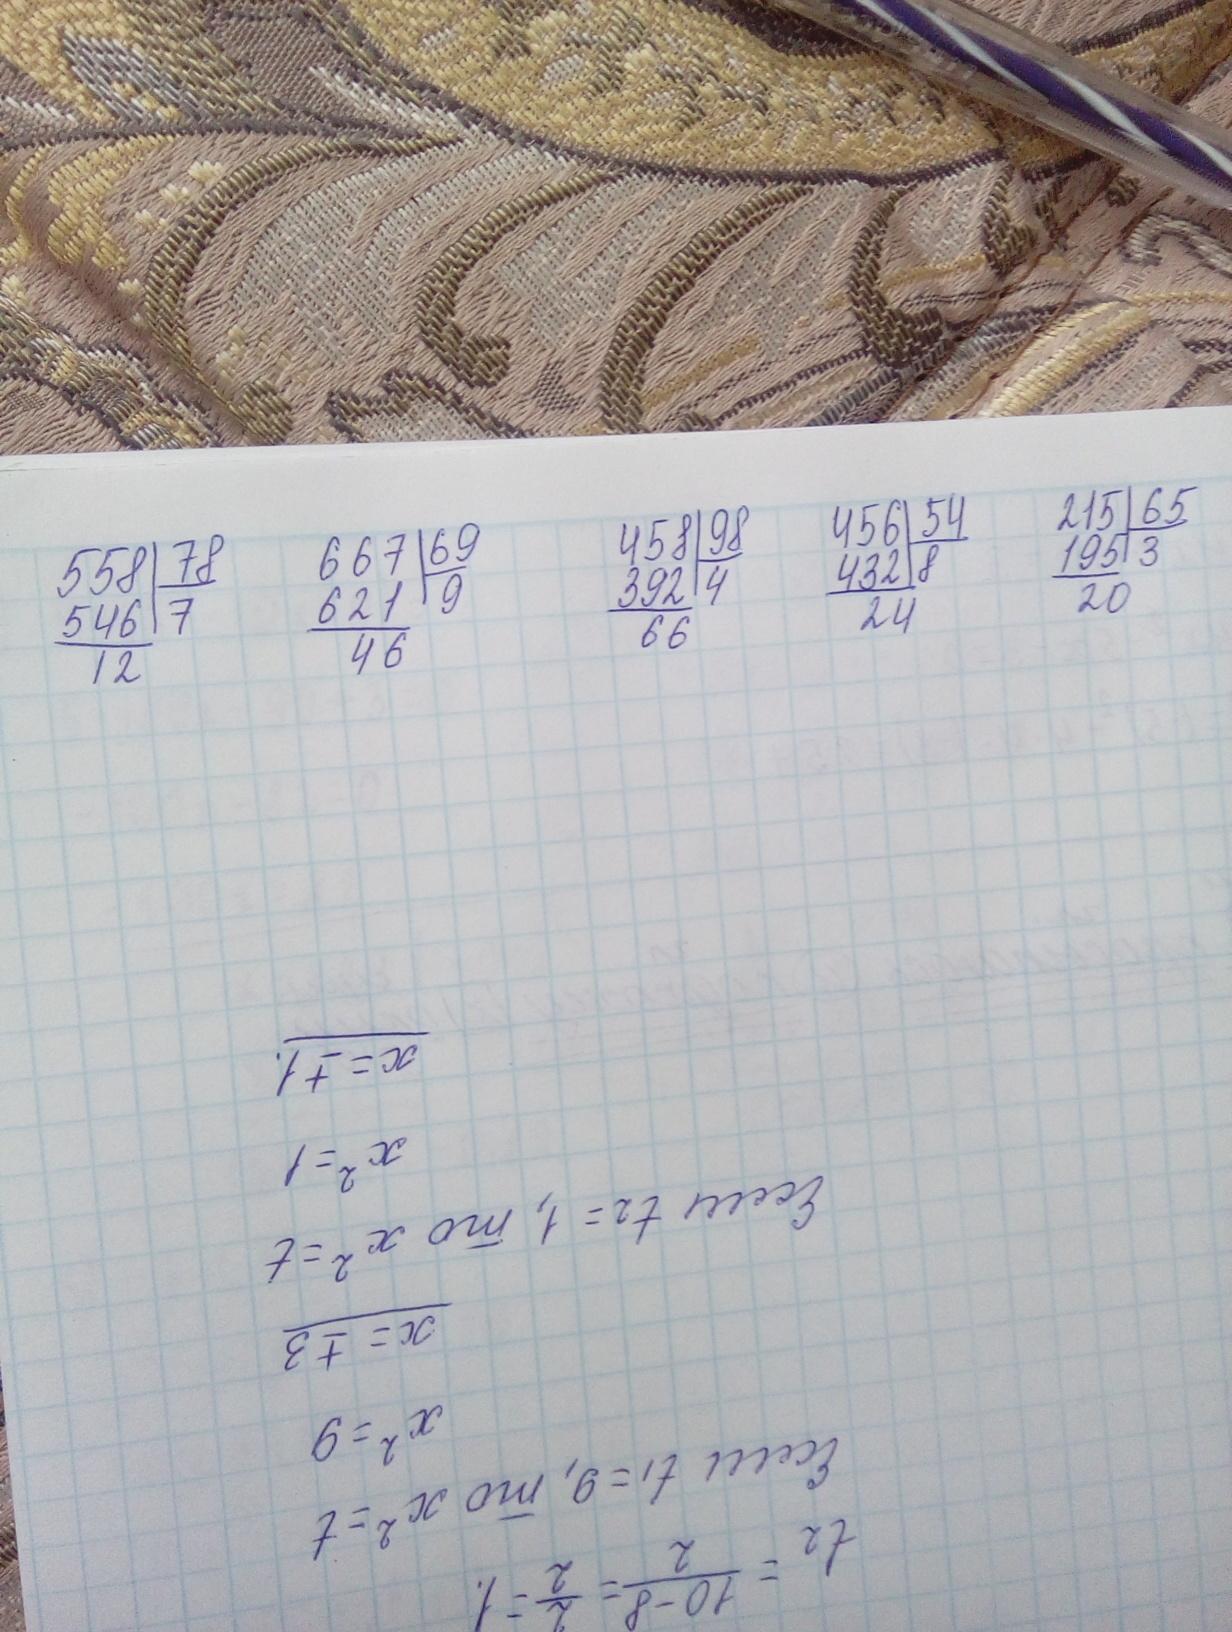 558 78
546 7
12
667 69
621 9
46
458 98
392 4
66
456 54
432 8
24
215 65
195 3
20
t₂ = (10-8)/2 = 2/2 = 1.
Если t₁ = 9, то x² = t
x² = 9
x = ± 3
Если t₂ = 1, то x² = t
x² = 1
x = ± 1.